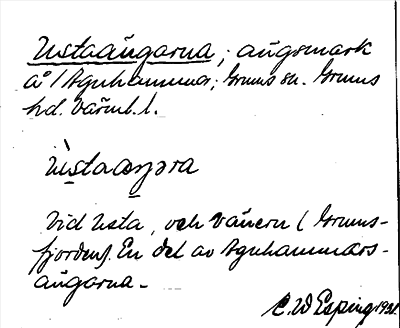 Ustaängarna; ängsmark
å 1/ Agnhammar; Grums sn. Grums
hd. Värml. l.
Vid Usta, och Vänern (Grums-
fjorden). En del av Agnhammars-
ängarna.
C. W Esping 1921.